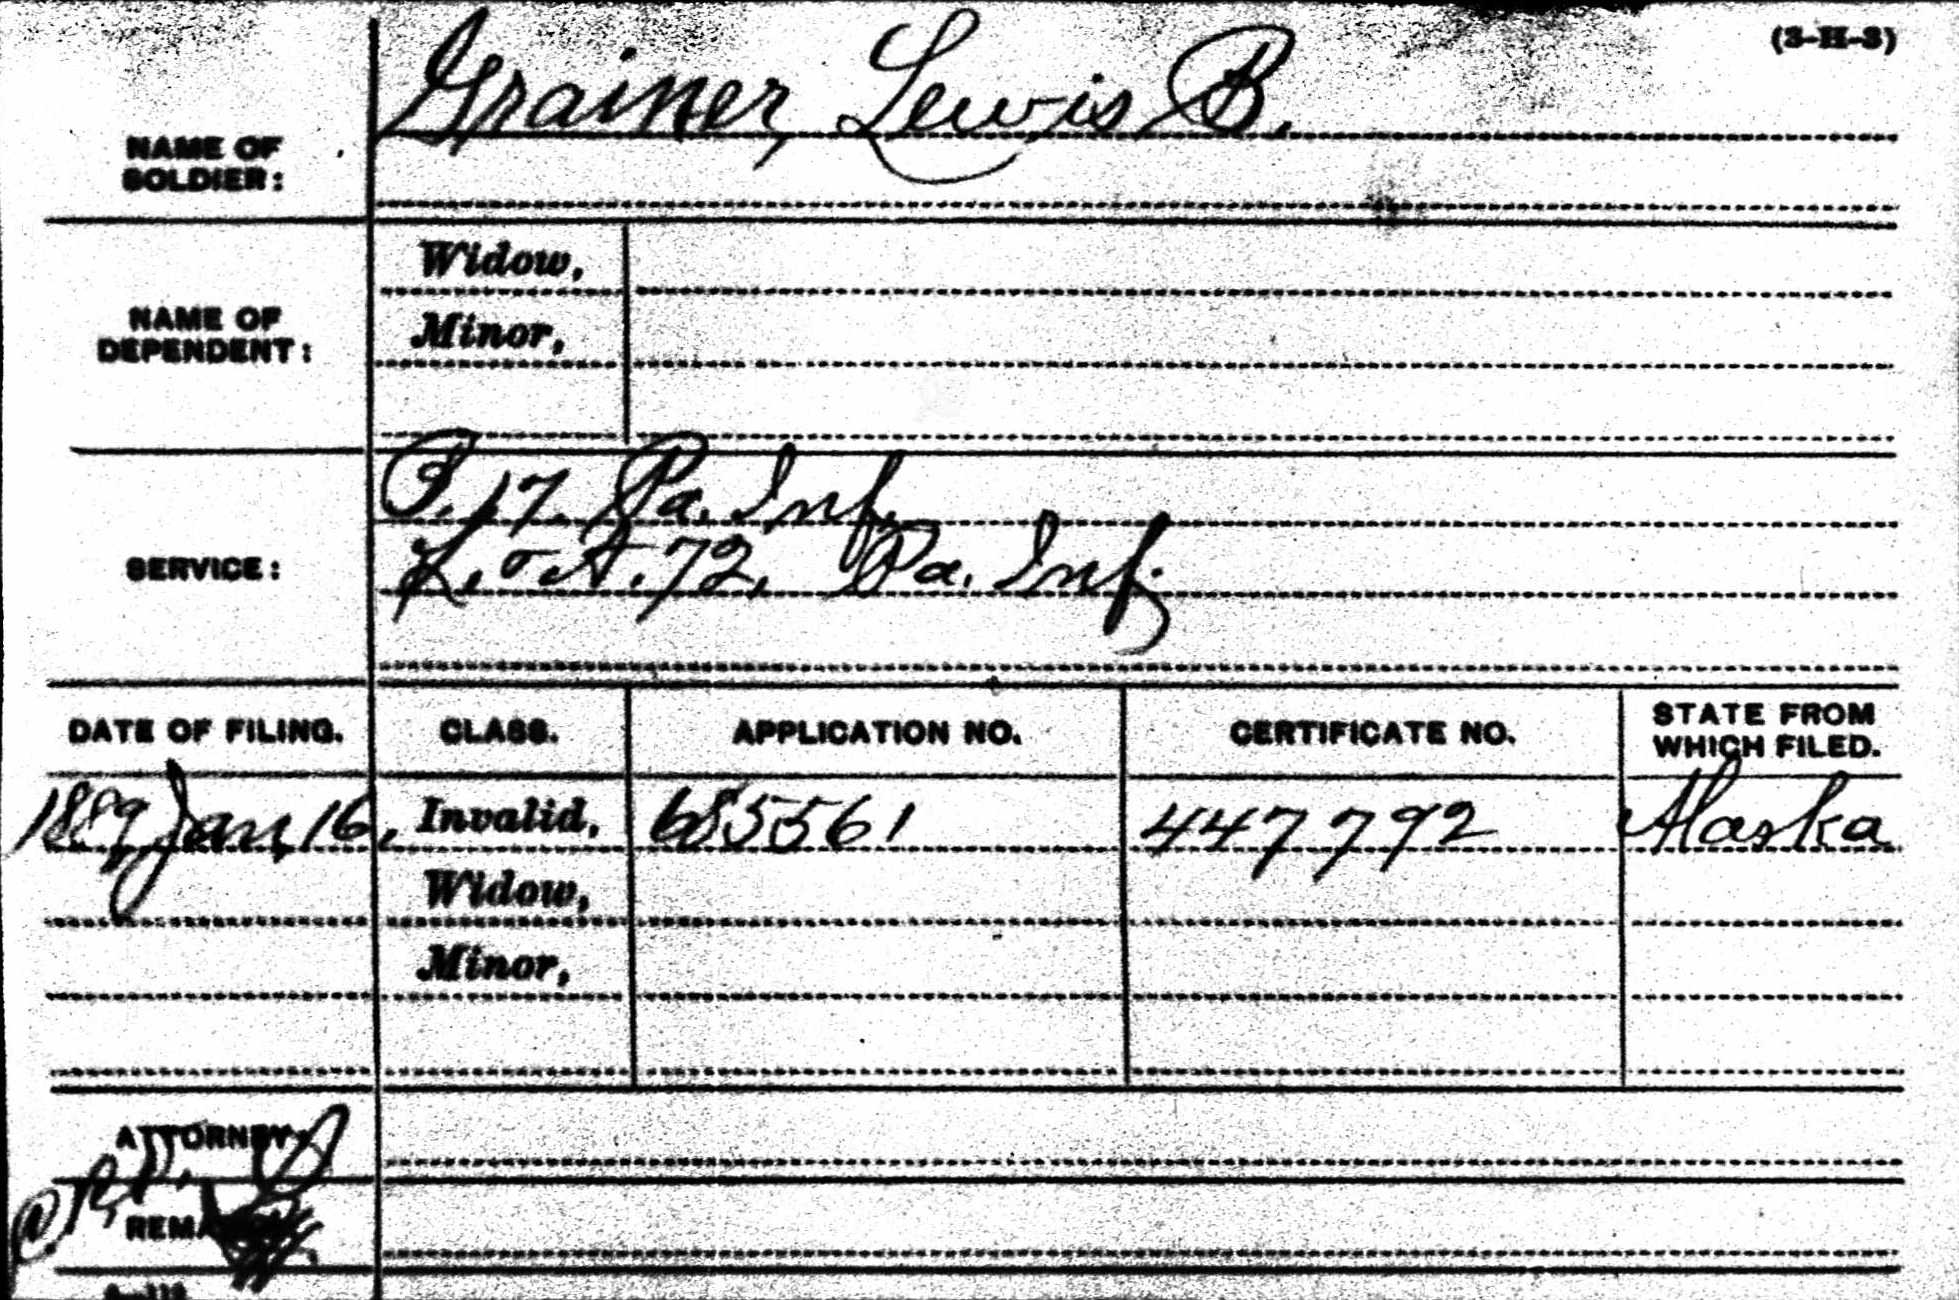 (3-H-3)
Grainer, Lewis B.
NAME OF
SOLDIER:
Widow,
NAME OF
DEPENDENT:
Minor,
B. 17. Pa. Inf.
SERVICE:
L. & A. 72, Pa. Inf.
DATE OF FILING. CLASS. APPLICATION NO. CERTIFICATE NO. STATE FROM
WHICH FILED.
1889 Jan, 16, Invalid, 685561 447792 Alaska
Widow,
Minor,
ATTORNEY: